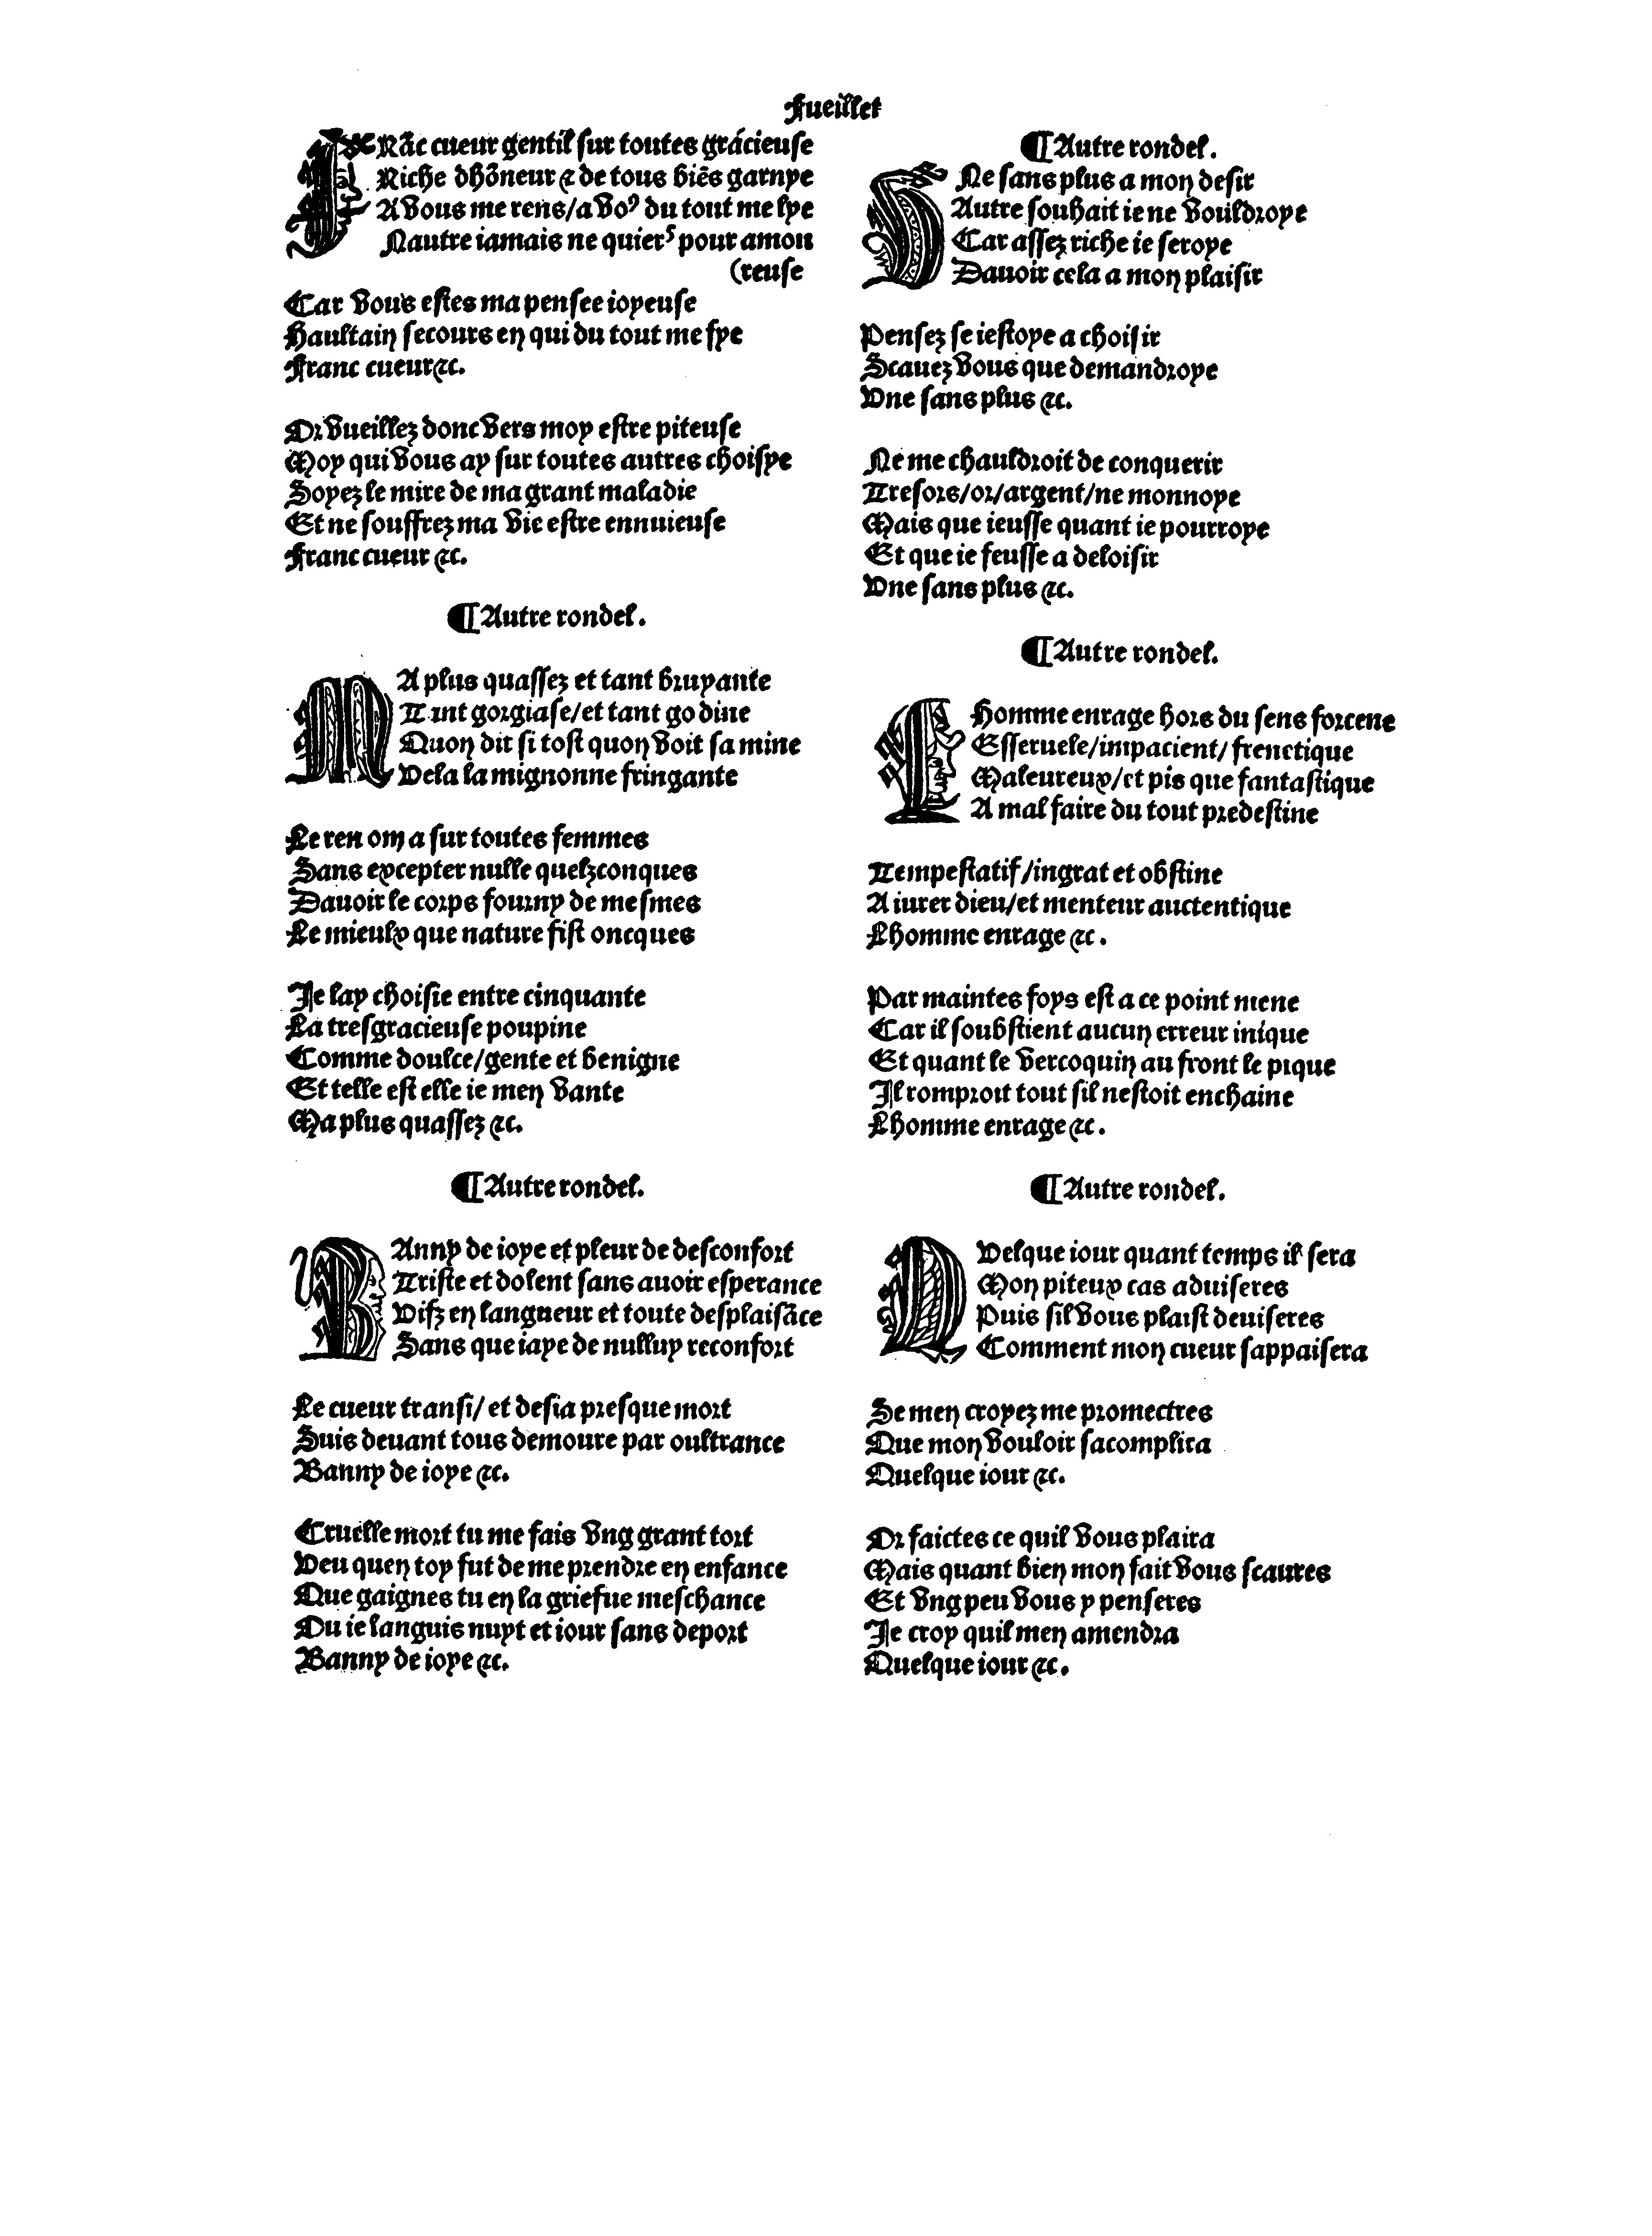 Fueillet
FRãc cueur gentil sur toutes gracieuse
Riche dhõneur & de tous biẽs garnye
A vous me rens/a voꝰ du tout me lye
Nautre iamais ne quier pour amou
(reuse
Car vous estes ma pensee ioyeuse
Haultain secours en qui du tout me fye
Franc cueur &c.
Or vueillez donc vers moy estre piteuse
Moy qui vous ay sur toutes autres choisye
Soyez le mire de ma grant maladie
Et ne souffrez ma vie estre ennuieuse
Franc cueur &c.
¶Autre rondel.
MA plus quassez et tant bruyante
Tant gorgiase/et tant godine
Quon dit si tost quon voit sa mine
Vela la mignonne fringante
Le renom a sur toutes femmes
Sans excepter nulle quelzconques
Dauoir le corps fourny de mesmes
Le mieulx que nature fist oncques
Je lay choisie entre cinquante
La tresgracieuse poupine
Comme doulce/gente et benigne
Et telle est elle ie men vante
Ma plus quassez &c.
¶Autre rondel.
BAnny de ioye et pleur de desconfort
Triste et dolent sans auoir esperance
Visz en langueur et toute desplaisãce
Sans que iaye de nulluy reconfort
Le cueur transi/ et desia presque mort
Suis deuant tous demoure par oultrance
Banny de ioye &c.
Cruelle mort tu me fais vng grant tort
Veu quen toy fut de me prendre en enfance
Que gaignes tu en la griefue meschance
Ou ie languis nuyt et iour sans deport
Banny de ioye &c.
¶Autre rondel.
VNe sans plus a mon desir
Autre souhait ie ne vouldroye
Car assez riche ie seroye
Dauoir cela a mon plaisir
Pensez se iestoye a choisir
Scauez vous que demandroye
Vne sans plus &c.
Ne me chauldroit de conquerir
Tresors/or/argent/ne monnoye
Mais que ieusse quant ie pourroye
Et que ie feusse a deloisir
Vne sans plus &c.
¶Autre rondel.
LHomme enrage hors du sens forcene
Esseruele/impacient/frenetique
Maleureux/et pis que fantastique
A mal faire du tout predestine
Tempestatif/ingrat et obstine
A iurer dieu/et menteur auctentique
Lhomme enrage &c.
Par maintes foys est a ce point mene
Car il soubstient aucun erreur inique
Et quant le vercoquin au front le pique
Il romproit tout sil nestoit enchaine
Lhomme enrage &c.
¶Autre rondel.
QVelque iour quant temps il sera
Mon piteux cas aduiseres
Puis sil vous plaist deuiseres
Comment mon cueur sappaisera
Se men croyez me promectres
Que mon vouloir sacomplira
Quelque iour &c.
Or faictes ce quil vous plaira
Mais quant bien mon fait vous scaures
Et vng peu vous y penseres
Je croy quil men amendra
Quelque iour &c.